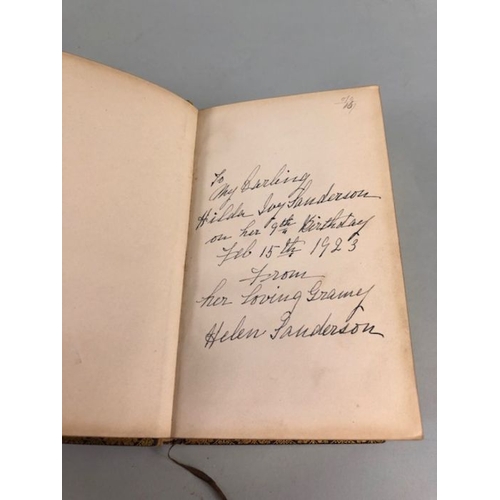 7/6
To
My Darling
Hilda Ivy Sanderson
on her 9th Birthday
Feb 15th 1923
From
her loving Gramy
Helen Sanderson